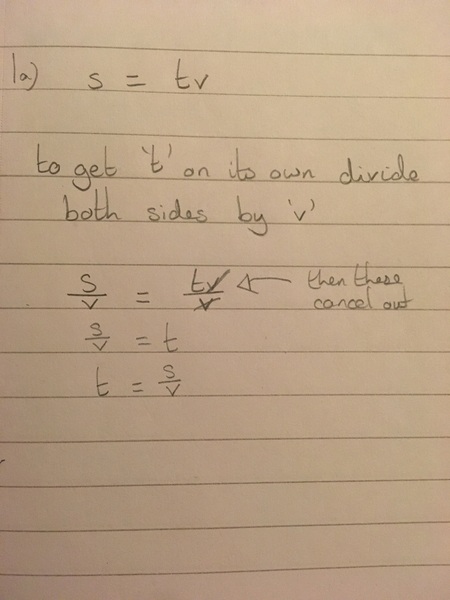 1a) s = tv
to get 't' on its own divide
both sides by 'v'
s/v = tv/v ← then these
cancel out
s/v = t
t = s/v